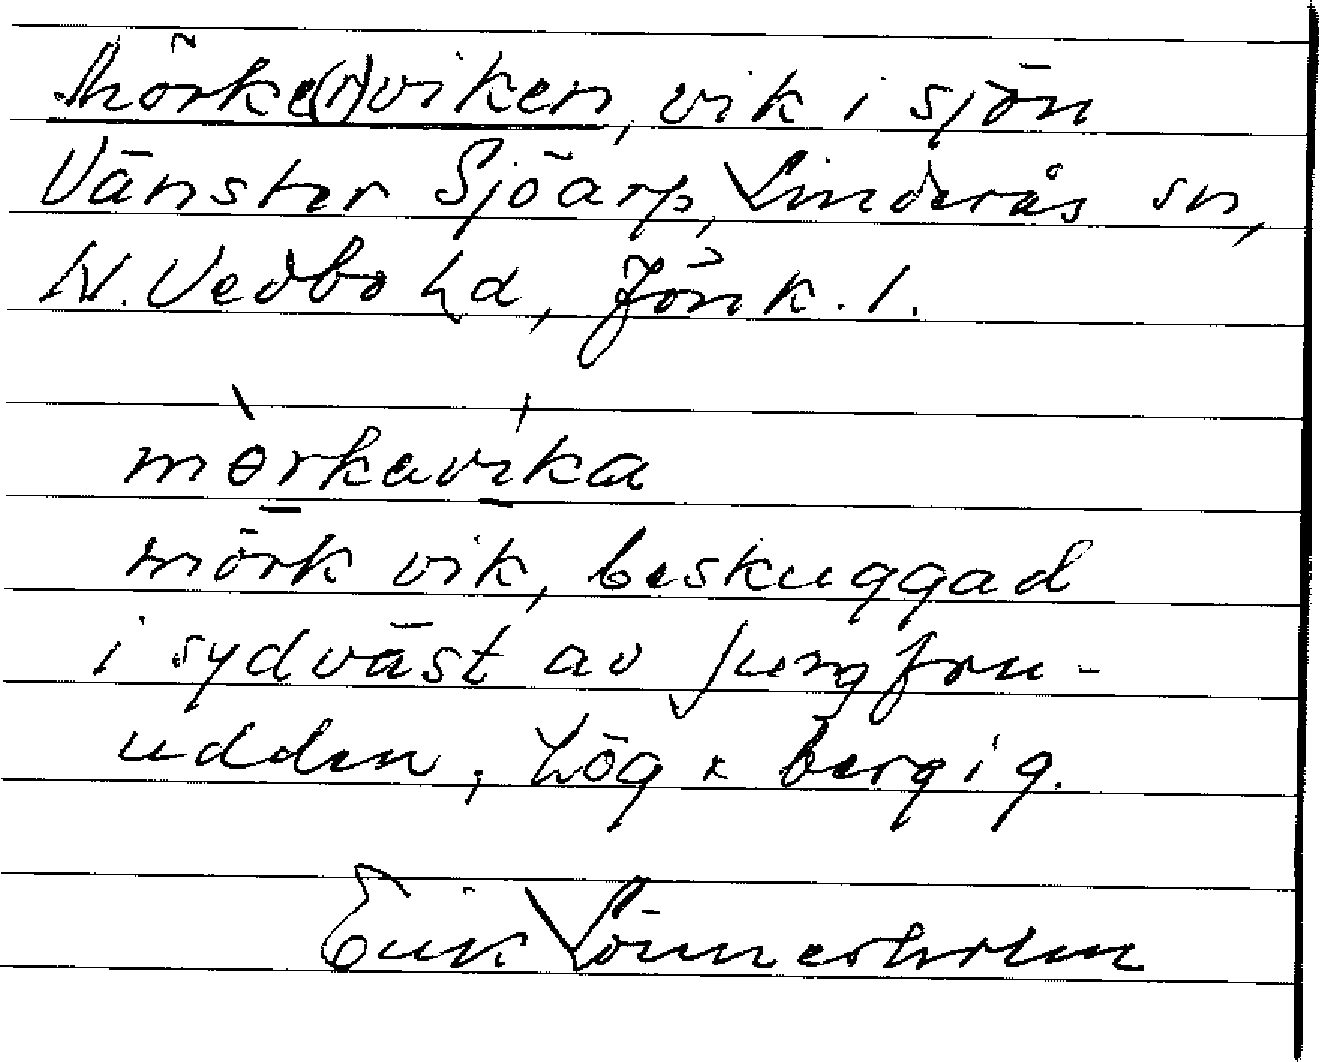 Mörke(r)viken, vik i sjön
Vänster Sjöarp, Linderås sn,
N. Vedbo hd, Jönk. l.
mörkavika
mörk vik, beskuggad
i sydväst av Jungfru-
udden, hög x bergig.
Erik Lönnerholm